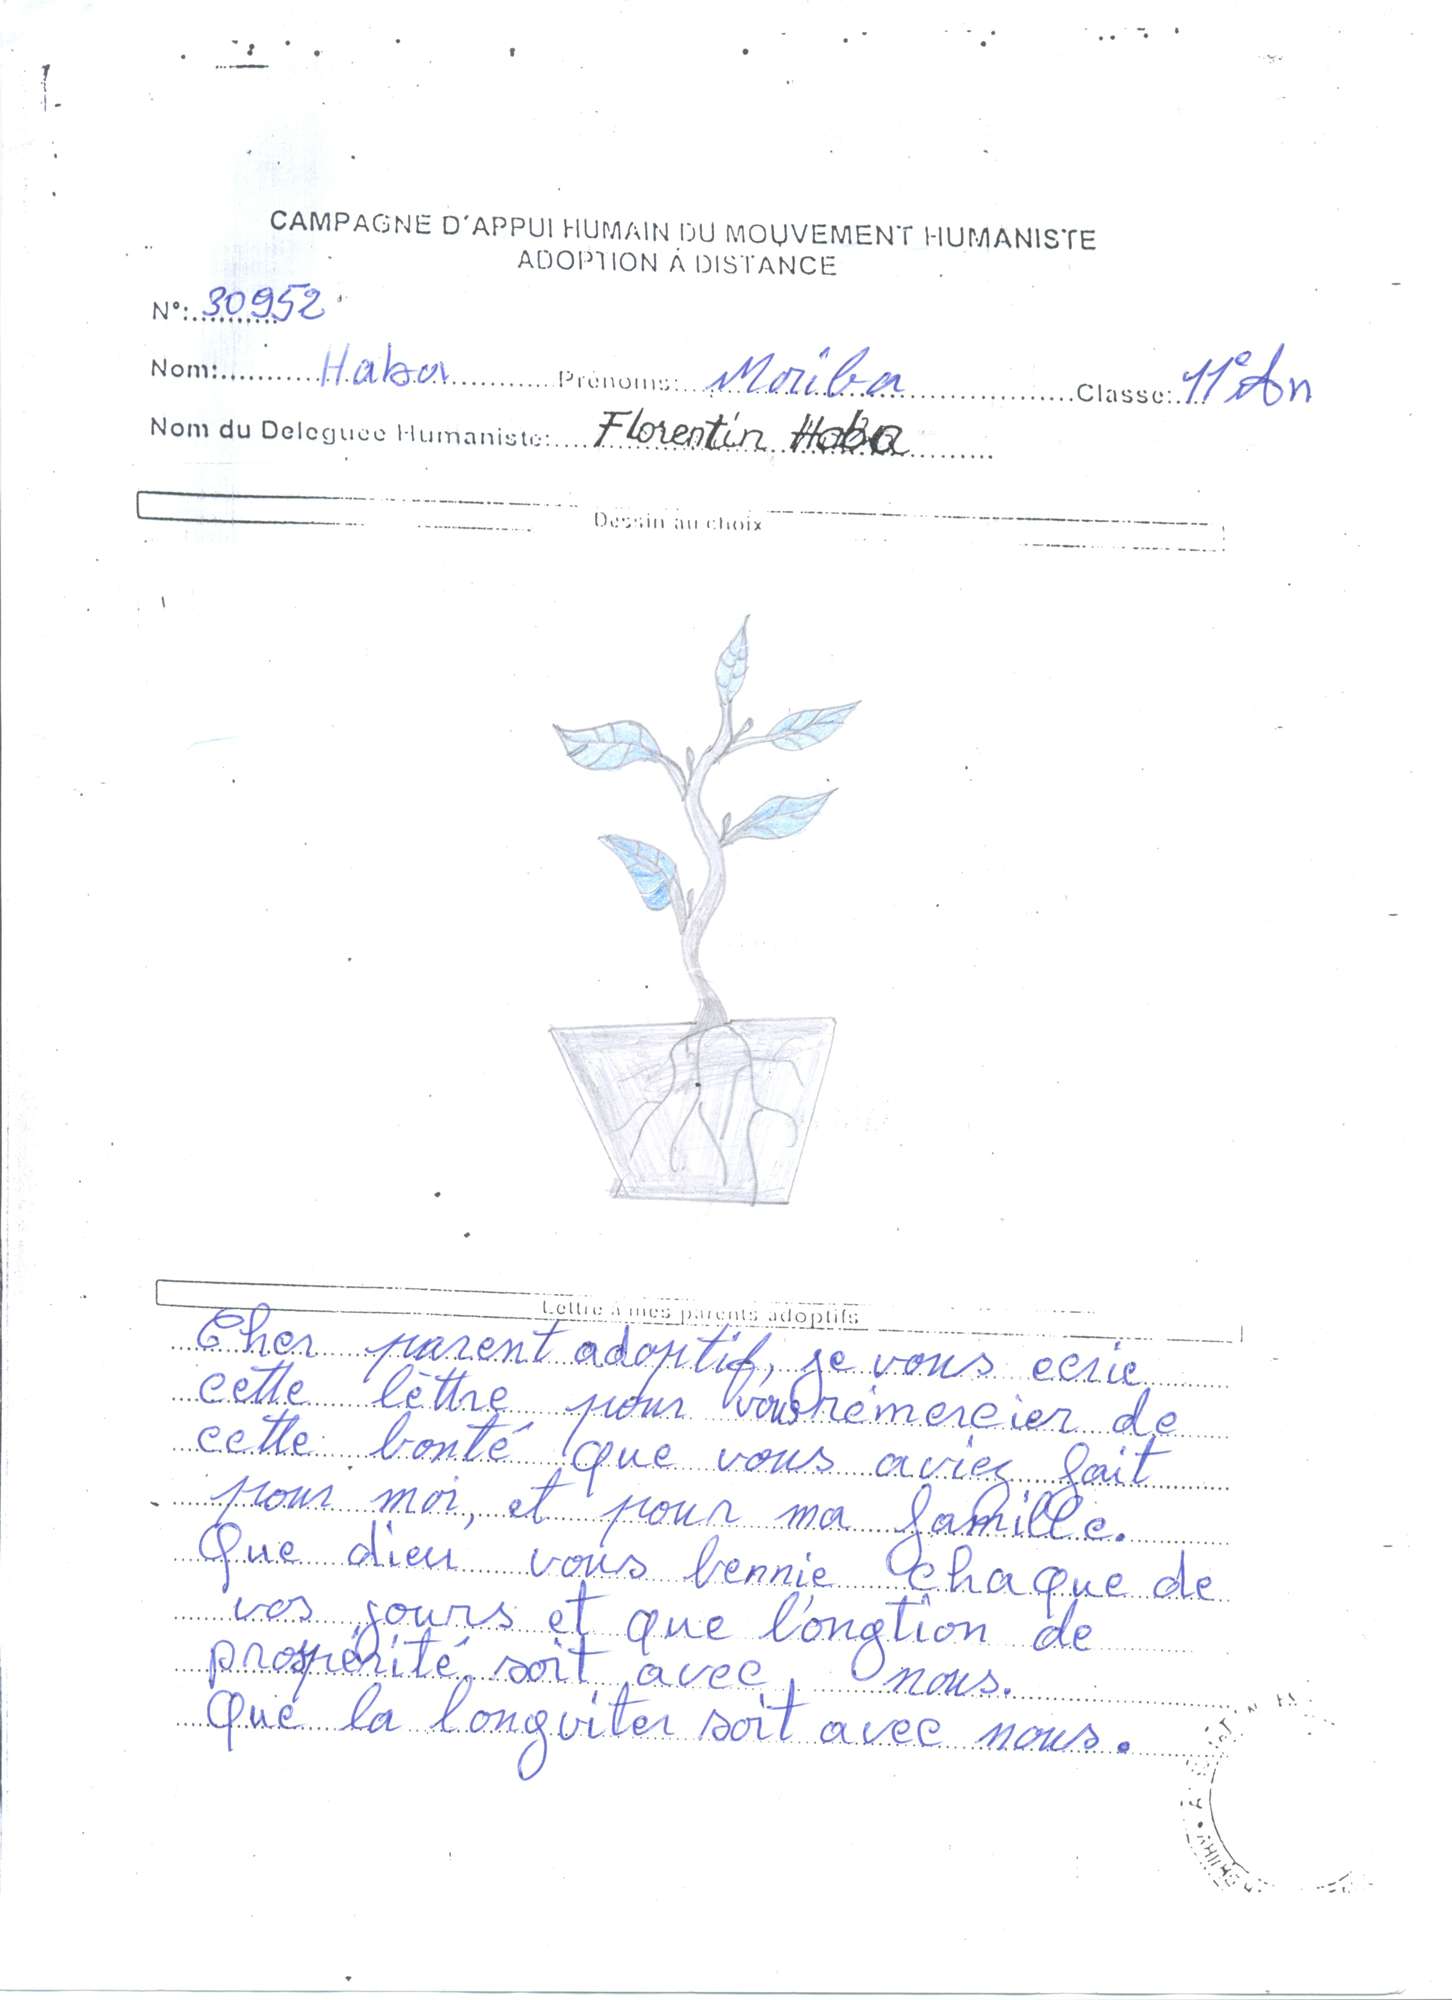 CAMPAGNE D'APPUI HUMAIN DU MOUVEMENT HUMANISTE
ADOPTION À DISTANCE
N°: 30952
Nom: Haba Prénoms: Moriba Classe: 11e An
Nom du Deleguee Humaniste: Florentin Haba
Dessin au choix
Lettre à mes parents adoptifs
Cher parent adoptif, je vous ecrie
cette lèttre pour vous rémercier de
cette bonté que vous aviez fait
pour moi, et pour ma famille.
Que dieu vous bennie chaque de
vos jours et que l'ongtion de
prospérité soit avec nous.
Que la longviter soit avec nous.